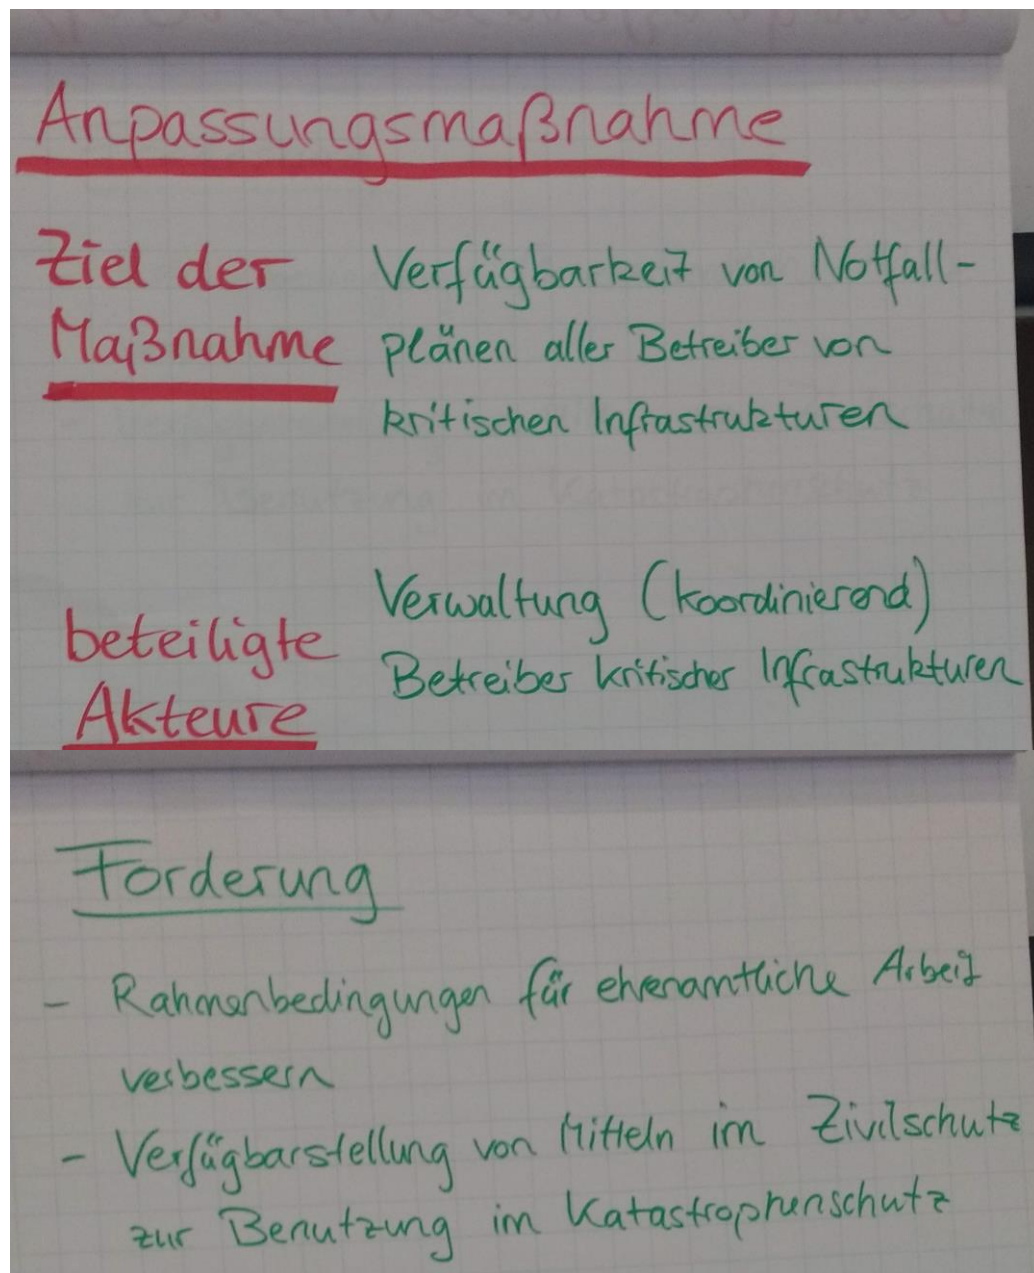 Anpassungsmaßnahme
Ziel der
Maßnahme
Verfügbarkeit von Notfall-
plänen aller Betreiber von
kritischen Infrastrukturen
beteiligte
Akteure
Verwaltung (koordinierend)
Betreiber kritischer Infrastrukturen
Forderung
- Rahmenbedingungen für ehrenamtliche Arbeit
verbessern
- Verfügbarstellung von Mitteln im Zivilschutz
zur Benutzung im Katastrophenschutz